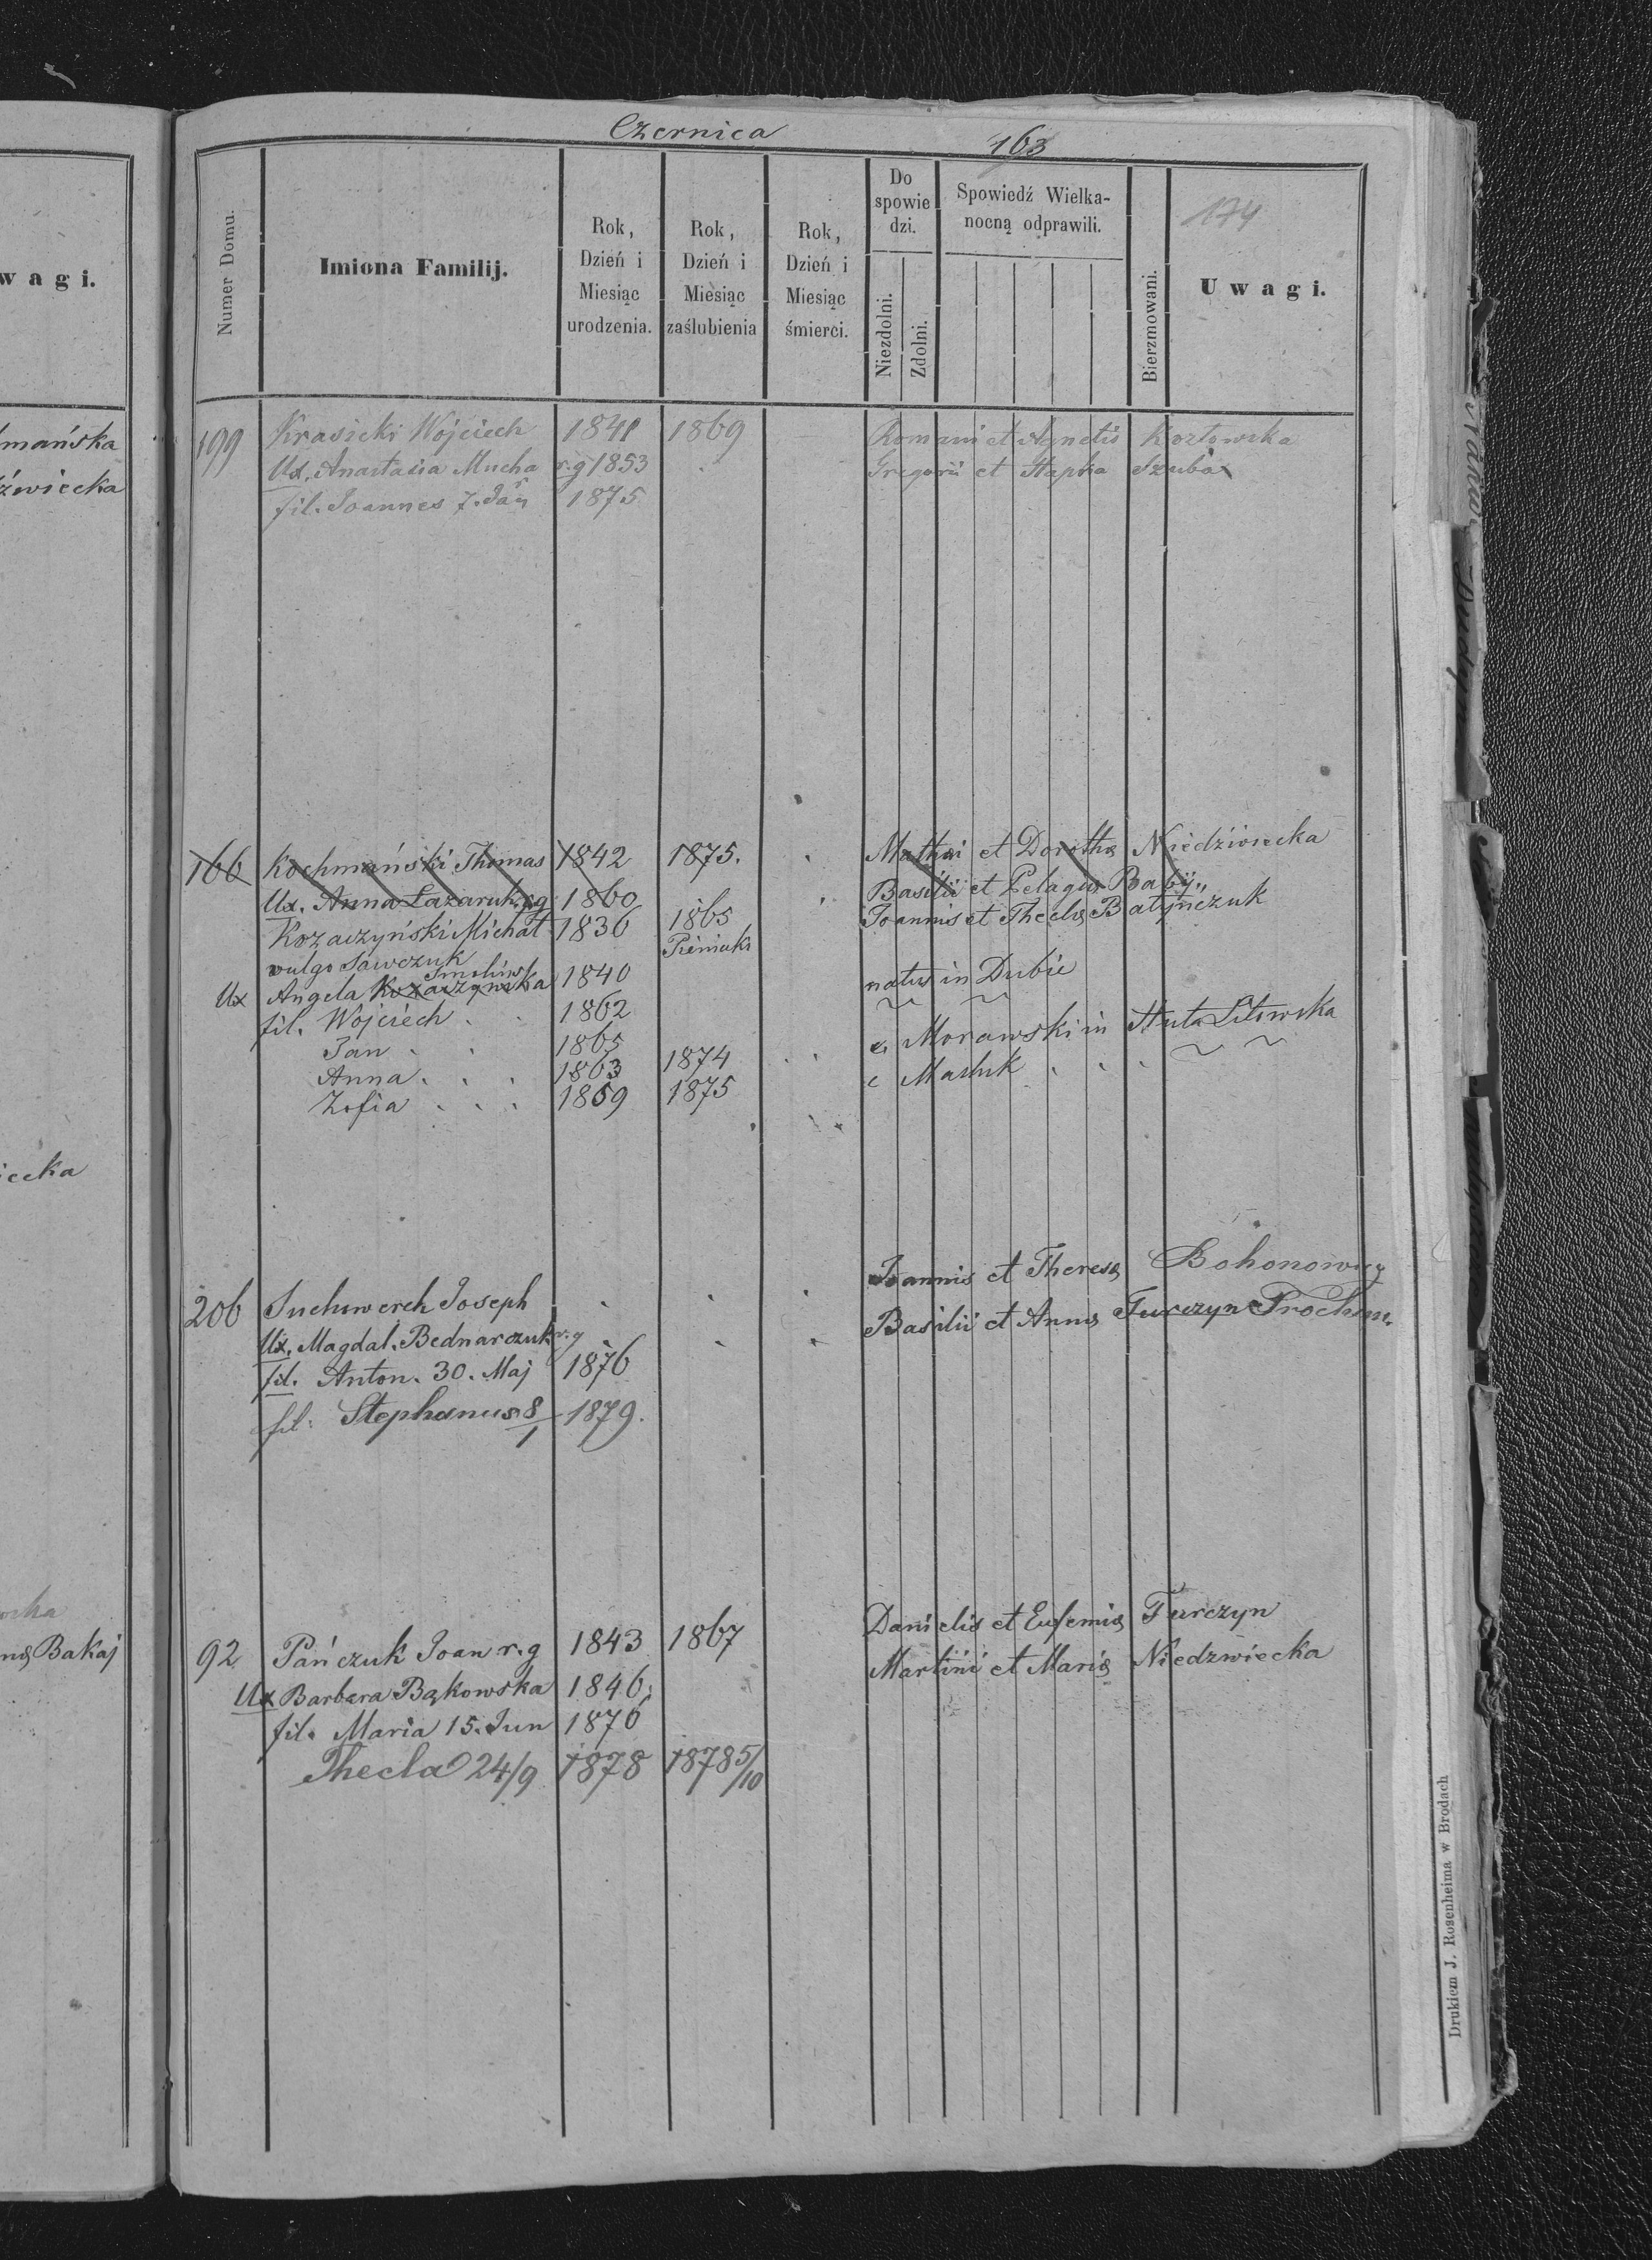 wagi.
mańska
źwiecka
iecka
Bakaj
Czernica
163
174
Numer Domu.
Imiona Familij.
Rok, Dzień i Miesiąc urodzenia.
Rok, Dzień i Miesiąc zaślubienia
Rok, Dzień i Miesiąc śmierci.
Do spowiedzi.
Niezdolni.
Zdolni.
Spowiedź Wielkanocną odprawili.
Bierzmowani.
Uwagi.
199 Krasicki Wojciech 1841 1869 Romani et Agnetis Kozłowska
Ux. Anastasia Mucha r.g 1853 Gregorii et Stapka Szuba
fil. Joannes 7. Jan 1875
166 Kochmański Thomas 1842 1875. Mathæi et Dorothæ Niedźwiecka
Ux. Anna Łazaruk r.g 1860 Basilii et Pelagiæ Babij
Kozaczyński Michał 1836 1865 Joannis et Theclæ Batynczuk
vulgo Sawczuk Pieniaki
Smolińska
Ux Angela Kozaczyńska 1840 natus in Dubie
fil. Wojciech 1862
Jan 1865 Morawski in Huta Litowska
Anna 1863 1874 c Masluk
Zofia 1859 1875
206 Suchowerch Joseph Joannis et Theresæ Bohonowicz
Ux. Magdal. Bednarczuk r.g Basilii et Annæ Turczyn Prochim.
fil. Anton. 30. Maj 1876
fil. Stephanus 8/1 1879.
92 Pańczuk Joan r.g 1843 1867 Danielis et Eufemiæ Turczyn
Ux Barbara Bąkowska 1846. Martini et Mariæ Niedzwiecka
fil. Maria 15. Jun 1876
Thecla 24/9 1878 1878 5/10
Drukiem J. Rosenheima w Brodach